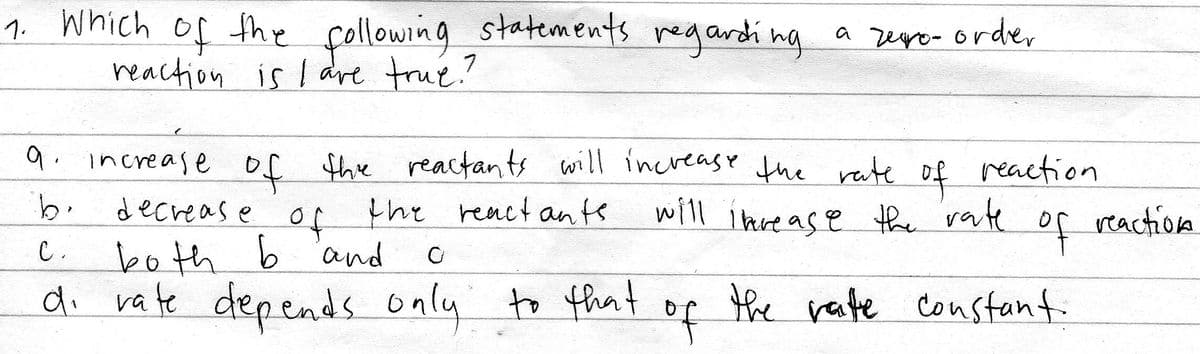 1. Which of the following statements regarding a zero-order
reaction is / are true?
a. increase of the reactants will increase the rate of reaction
b. decrease of the reactants will increase the rate of reaction
c. both b and c
d. rate depends only to that of the rate constant.